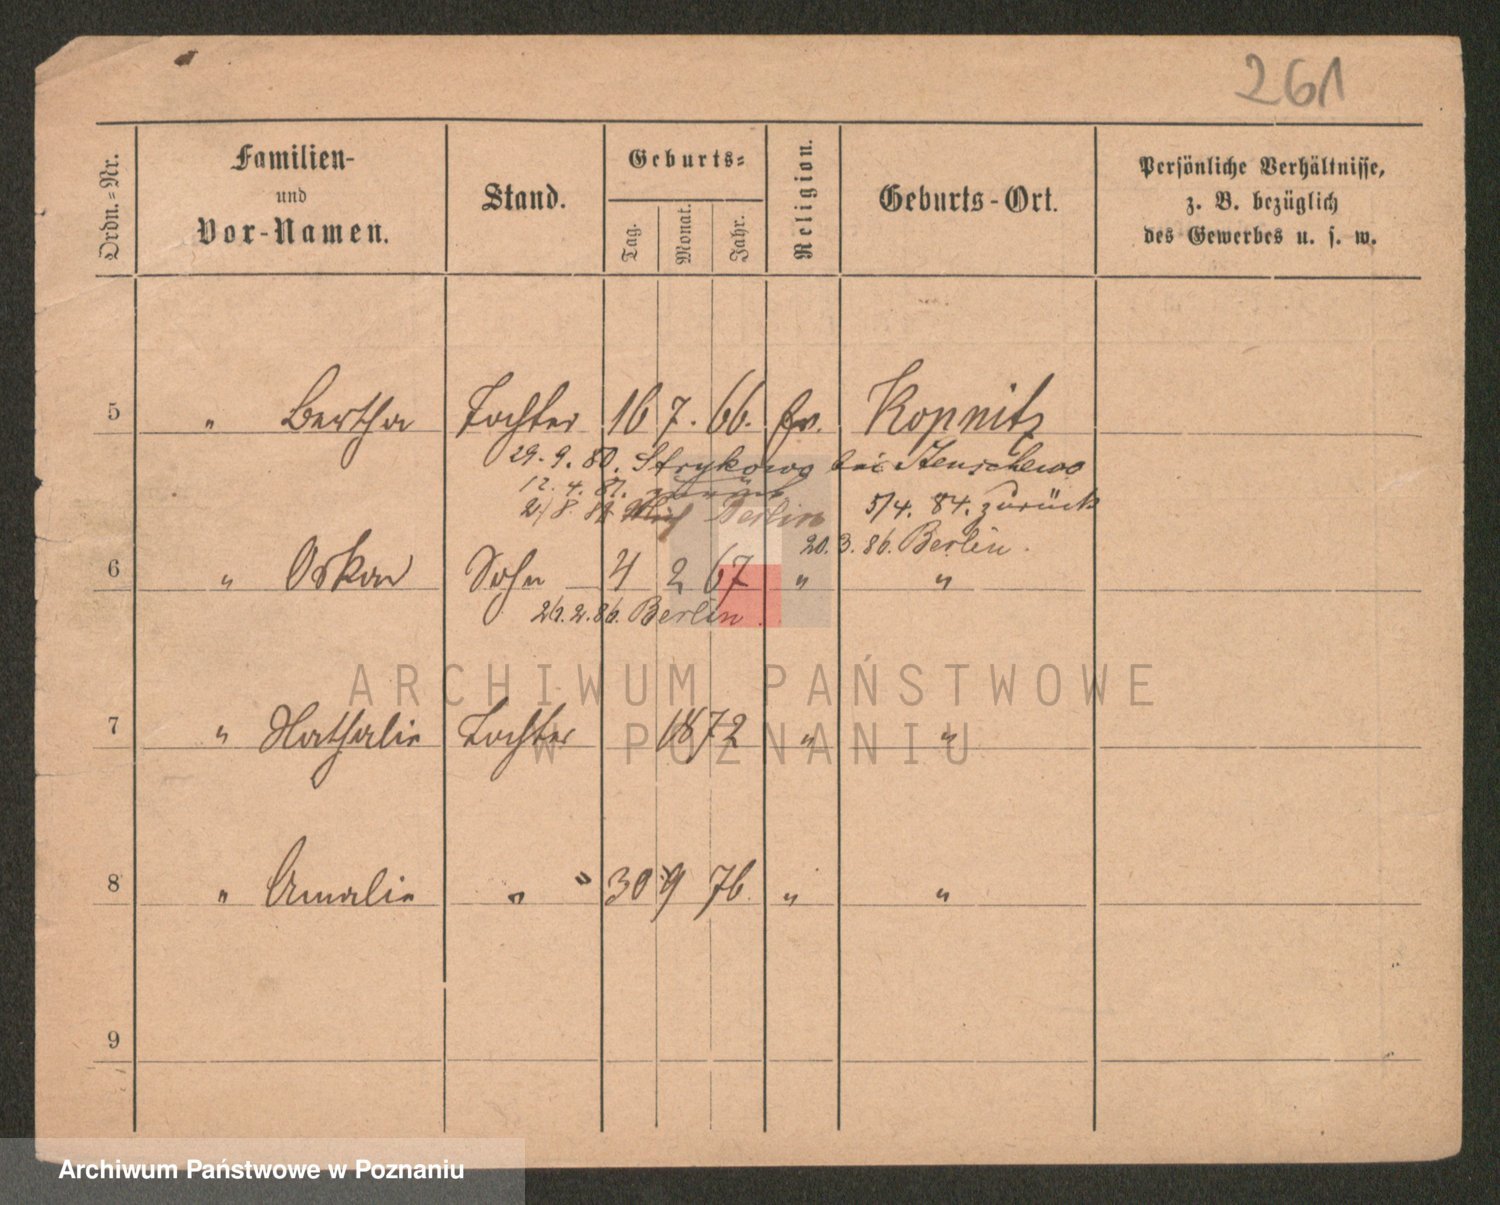 261
Ordn.-Nr.
Familien-
und
Vor-Namen.
Stand.
Geburts-
Tag.
Monat.
Jahr.
Religion.
Geburts-Ort.
Persönliche Verhältnisse,
z. B. bezüglich
des Gewerbes u. s. w.
5 " Bertha Tochter 16 7. 66. Kopnitz
29. 9. 80. Strykowo bei Stenschewo
12. 4. 81. zurück
Berlin 5/4. 84. zurück
20. 3. 86. Berlin.
6 " Oskar Sohn 4 2 67 " "
26. 2. 86. Berlin.
ARCHIWUM PAŃSTWOWE
W POZNANIU
7 " Nathalie Tochter 1872 " "
8 " Amalie " " 30 9 76. " "
9
Archiwum Państwowe w Poznaniu